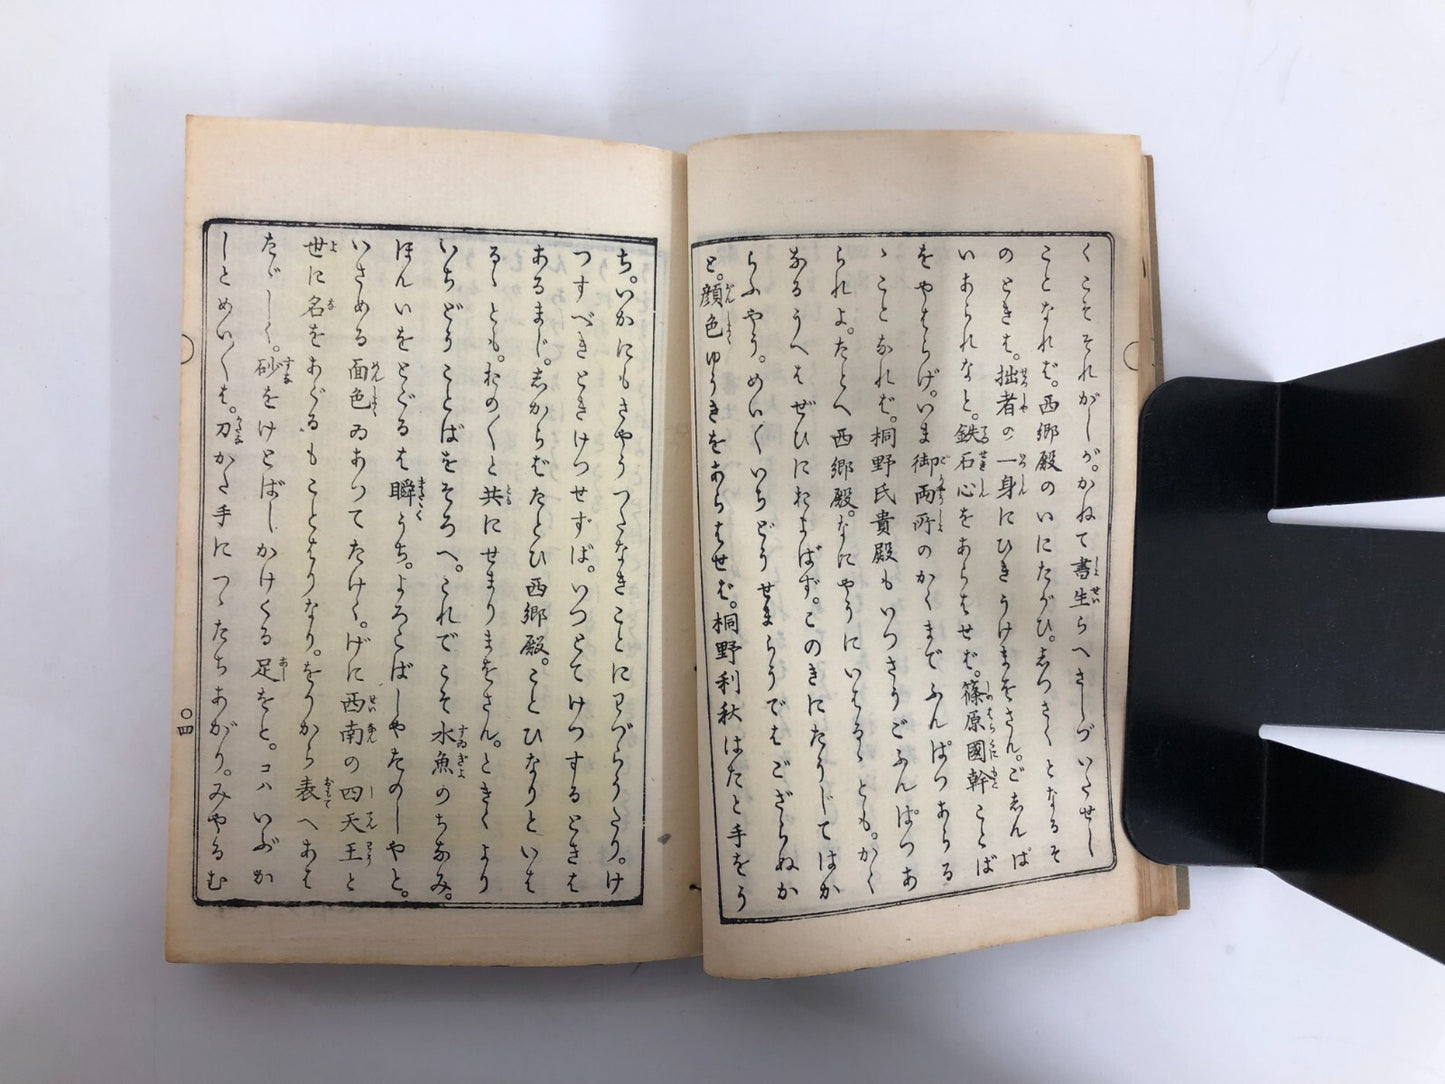 くこそそれがしが。かねて書生らへさしづいたせし
ことなれば。西郷殿のいにたがひ。しつさくとなるそ
のときは。拙者の一身にひきうけまをさん。ごしんぱ
いあられなと。鉄石心をあらはせば。篠原國幹ことば
をやはらげ。いま御両所のかくまでふんぱつあらる
ゝことなれば。桐野氏貴殿もいつさうごふんぱつあ
られよ。たとへ西郷殿。なにやうにいはるゝとも。かく
なるうへはぜひにおよばず。このきにたうじてはか
らふやう。めいくいちどうせまらうでもござらぬか
と。顔色ゆうきをあらはせば。桐野利秋はたと手をう
ち。いかにもさやうつたなきことにわづらうたり。け
つすべきときけつせずば。いつとてけつするときは
あるまじ。しからばたとひ西郷殿。ことひなりといは
るゝとも。おの〱と共にせまりまをさん。ときくより
いちどうことばをそろへ。これでこそ水魚のちなみ。
ほんいをとぐるは瞬うち。よろこばしやたのしやと。
いさめる面色ゐあつてたけく。げに西南の四天王と
世に名をあぐるもことはりなり。をりから表へあは
たゞしく。砂をけとばしかけくる足をと。コハいぶか
しとめい〱は。刀かた手につゝたちあがり。みやるむ
〇四